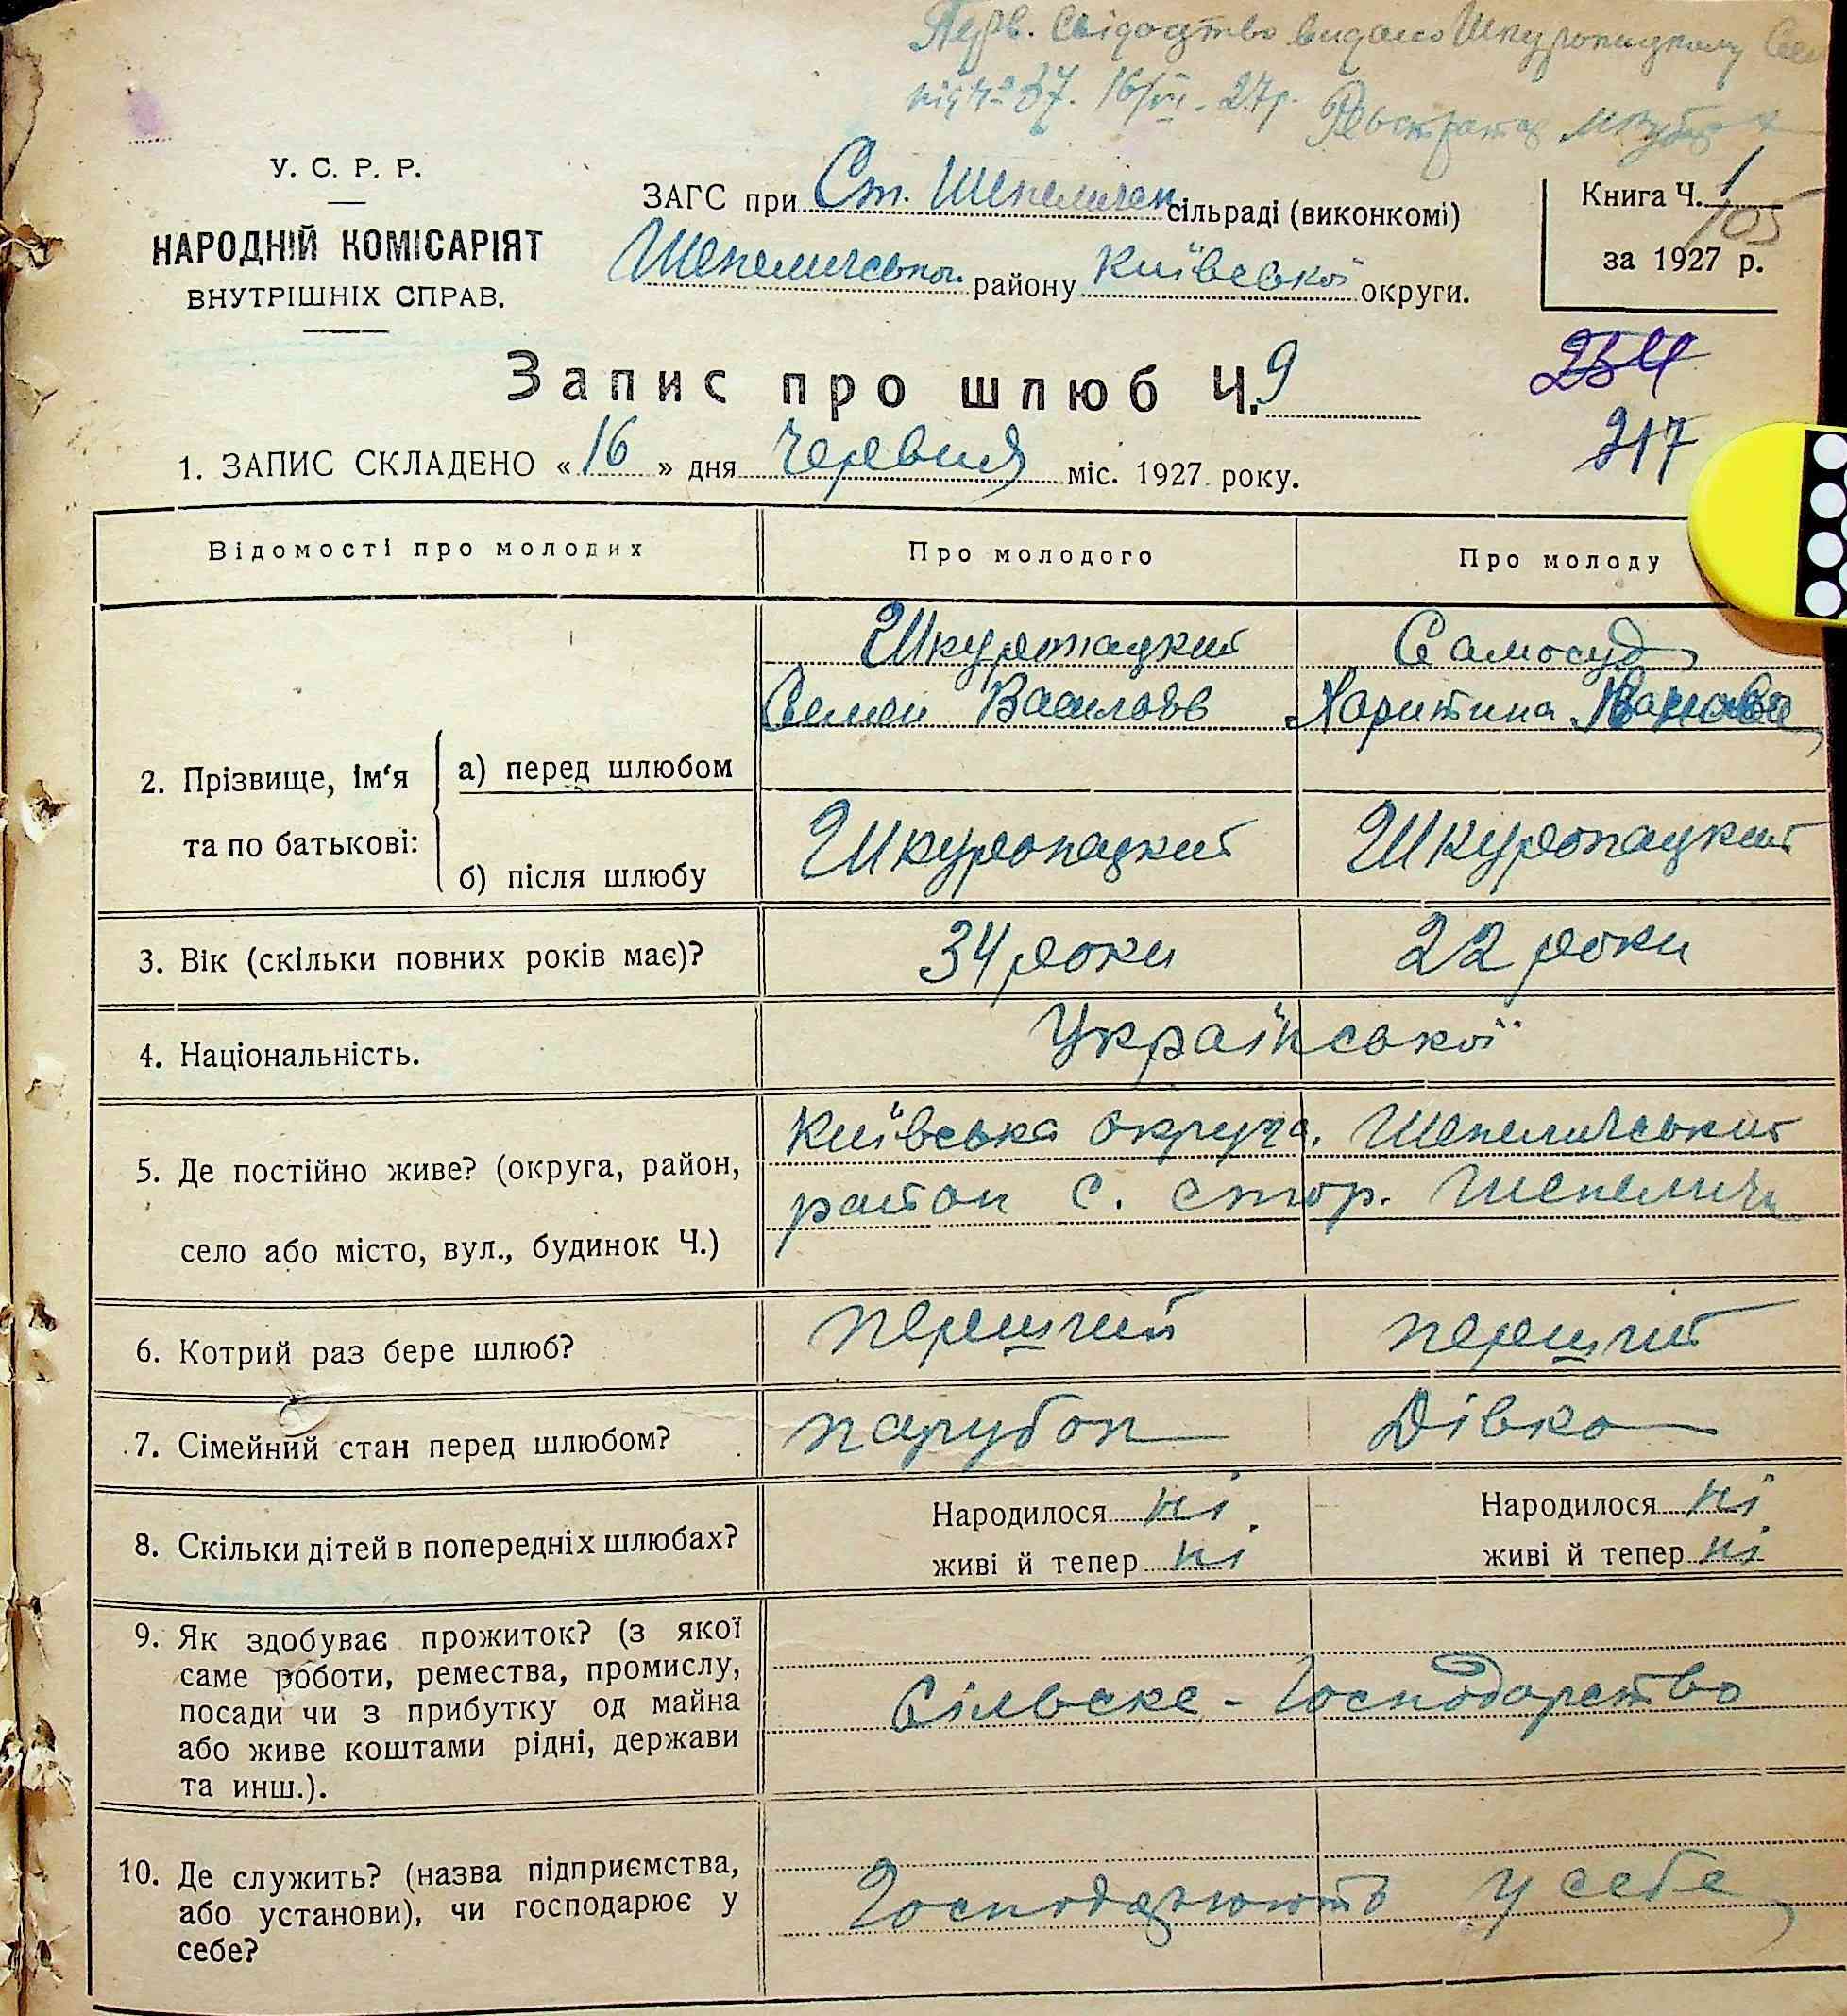 Перв. Свідоцтво видано Шкуропацкому Сем
під № 37. 16/VI. 27р. Реєстратор
У. С. Р. Р.
НАРОДНІЙ КОМІСАРІЯТ
ВНУТРІШНІХ СПРАВ.
ЗАГС при Ст. Шепеличан сільраді (виконкомі)
Шепеличської району Київської округи.
Книга Ч. 1
105
за 1927 р.
Запис про шлюб Ч. 9
254
217
1. ЗАПИС СКЛАДЕНО «16» дня Червня міс. 1927 року.
Відомості про молодих Про молодого Про молоду
Шкуропацкий Самосуд
Семен Васильов Харитина
2. Прізвище, ім'я а) перед шлюбом
та по батькові: б) після шлюбу Шкуропацкий Шкуропацкий
3. Вік (скільки повних років має)? 34 роки 22 роки
4. Національність. Української
5. Де постійно живе? (округа, район, Київська округа, Шепеличський
район с. стар. Шепеличи
село або місто, вул., будинок Ч.)
6. Котрий раз бере шлюб? перший перший
7. Сімейний стан перед шлюбом? парубок Дівка
8. Скільки дітей в попередніх шлюбах? Народилося ні Народилося ні
живі й тепер ні живі й тепер ні
9. Як здобуває прожиток? (з якої
саме роботи, ремества, промислу,
посади чи з прибутку од майна Сільске-Господарство
або живе коштами рідні, держави
та инш.).
10. Де служить? (назва підприємства,
або установи), чи господарює у Господарюють у себе
себе?